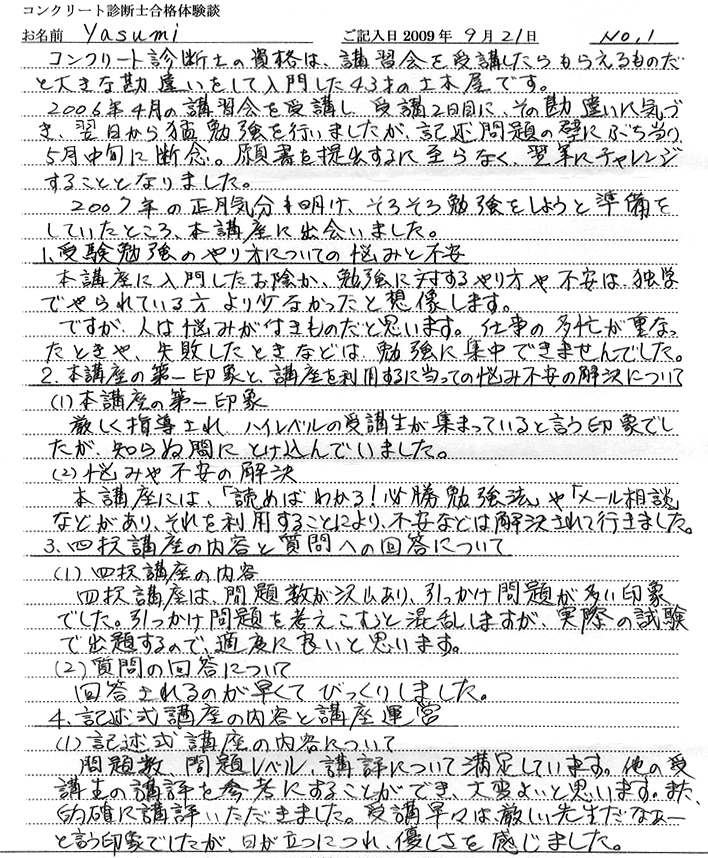 コンクリート診断士合格体験談
お名前 Yasumi ご記入日 2009年 9月21日 No.1
コンクリート診断士の資格は、講習会を受講したらもらえるものだ
と大きな勘違いをして入門した43才の土木屋です。
2006年4月の講習会を受講し、受講2日目に、その勘違いに気づ
き、翌日から猛勉強を行いましたが、記述問題の壁にぶち当り、
5月中旬に断念。願書を提出するに至らなく、翌年にチャレンジ
することとなりました。
2007年の正月気分も明け、そろそろ勉強をしようと準備を
していたところ、本講座に出会いました。
1.受験勉強のやり方についての悩みと不安
本講座に入門したお陰か、勉強に対するやり方や不安は、独学
でやられている方より少なかったと想像します。
ですが、人は悩みが付きものだと思います。仕事の多忙が重なっ
たときや、失敗したときなどは、勉強に集中できませんでした。
2.本講座の第一印象と、講座を利用するに当っての悩み不安の解決について
(1)本講座の第一印象
厳しく指導され、ハイレベルの受講生が集まっていると言う印象でし
たが、知らぬ間にとけ込んでいました。
(2)悩みや不安の解決
本講座には、「読めばわかる!必勝勉強法」や「メール相談」
などがあり、それを利用することにより、不安などは解決されて行きました。
3.四択講座の内容と質問への回答について
(1)四択講座の内容
四択講座は、問題数が沢山あり、引っかけ問題が多い印象
でした。引っかけ問題を考えこすると混乱しますが、実際の試験
で出題するので、適度に良いと思います。
(2)質問の回答について
回答されるのが早くてびっくりしました。
4.記述式講座の内容と講座運営
(1)記述式講座の内容について
問題数、問題レベル、講評について満足しています。他の受
講生の講評を参考にすることができ、大変よいと思います。また、
的確に講評いただきました。受講早々は厳しい先生だなぁー
と言う印象でしたが、日が立つにつれ、優しさを感じました。